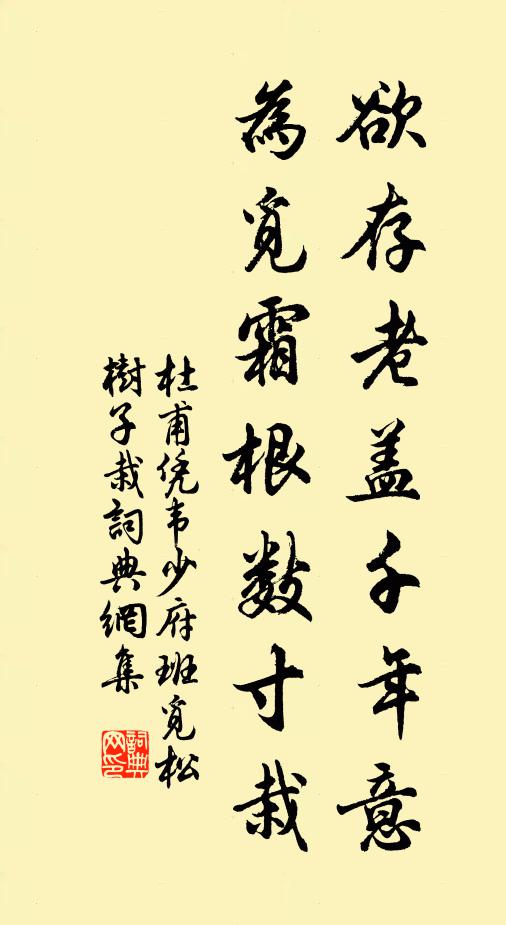 欲存老盖千年意
為覓霜根數寸栽
杜甫凭韦少府班覓松
樹子栽詞典網集
詞典网印